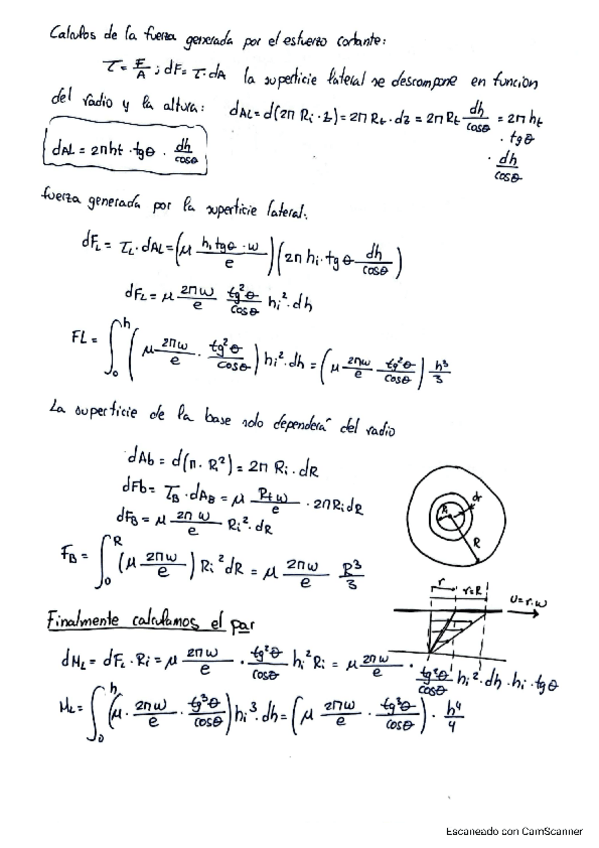 Calculos de la fuerza generada por el esfuerzo cortante:
τ = F/A ; dF = τ·dA la superficie lateral se descompone en funcion
del radio y la altura: dAL = d(2π Ri · z) = 2π Rt · dz = 2π Rt dh/cosθ = 2π ht
· tgθ
· dh/cosθ
dAL = 2πht · tgθ · dh/cosθ
fuerza generada por la superficie lateral:
dFL = τL · dAL = (μ hi tgθ · w / e) (2π hi · tgθ dh/cosθ)
dFL = μ 2πw/e tg²θ/cosθ hi² · dh
FL = ∫₀ʰ (μ 2πw/e · tg²θ/cosθ) hi² · dh = (μ 2πw/e tg²θ/cosθ) h³/3
La superficie de la base solo dependerá del radio
dAb = d(π · R²) = 2π Ri · dR
dFb = τB · dAB = μ Rt w/e · 2π Ri dR
dFB = μ 2πw/e Ri² · dR
FB = ∫₀ᴿ (μ 2πw/e) Ri² dR = μ 2πw/e R³/3
R
r r=R
U=r.w
Finalmente calculamos el par
dML = dFL · Ri = μ 2πw/e · tg²θ/cosθ hi² Ri = μ 2πw/e · tg²θ/cosθ hi² · dh · hi · tgθ
ML = ∫₀ʰ (μ · 2πw/e · tg³θ/cosθ) hi³ · dh = (μ 2πw/e · tg³θ/cosθ) · h⁴/4
Escaneado con CamScanner